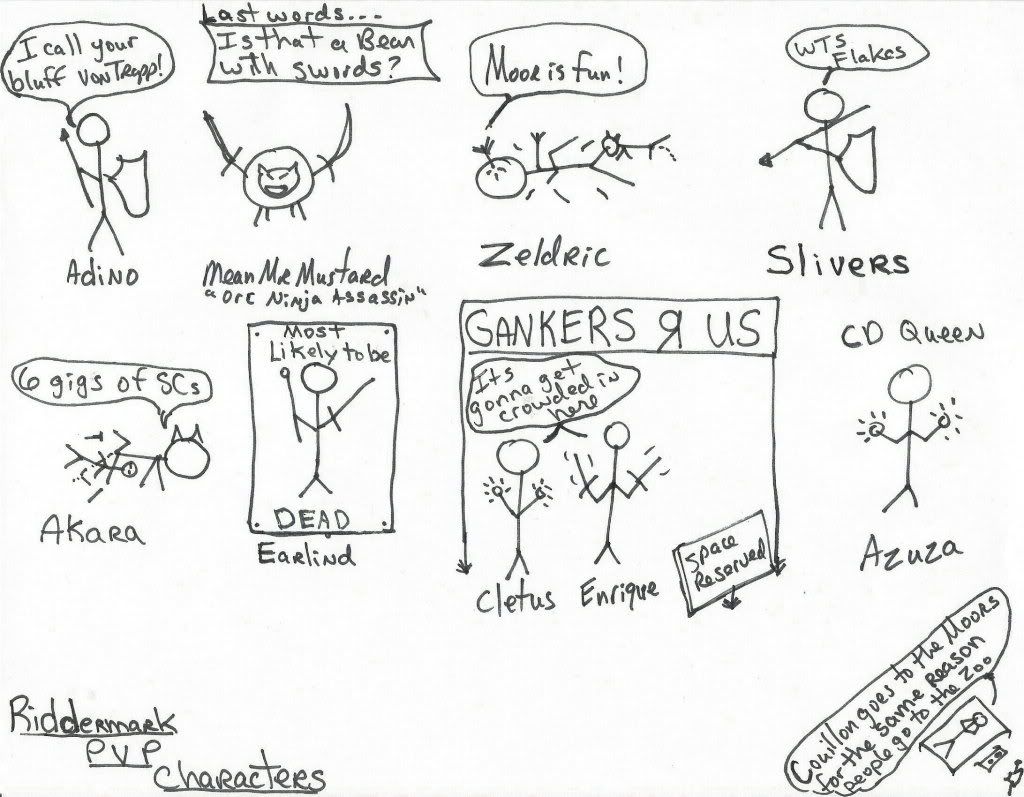 I call your
bluff VonTrapp!
Adino
Last words...
Is that a Bear
with swords?
Mean Mr Mustard
"Orc Ninja Assassin"
Moor is fun!
Zeldric
WTS
Flakes
Slivers
6 gigs of SCs
Akara
Most
Likely to be
DEAD
Earlind
GANKERS Я US
Its
gonna get
crowded in
here
Cletus
Enrique
Space
Reserved
CD Queen
Azuza
Riddermark
PVP
Characters
Couillon goes to the Moors
for the same reason
people go to the zoo